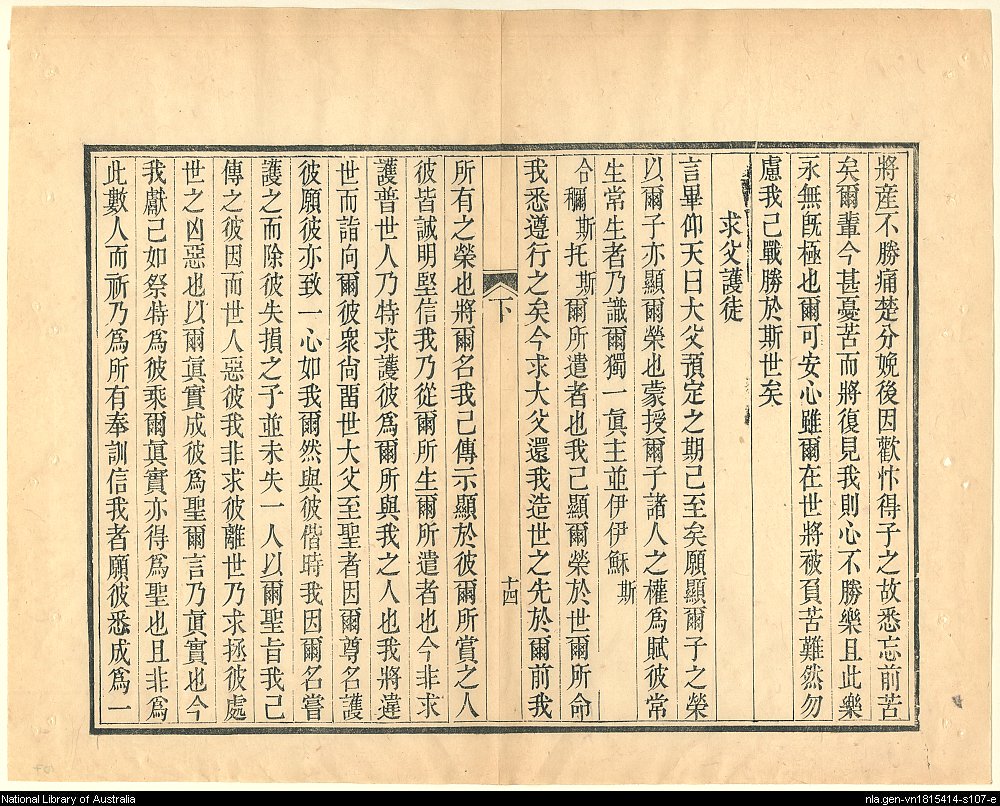 將産不勝痛楚分娩後因歡忭得子之故悉忘前苦
矣爾輩今甚憂苦而將復見我則心不勝樂且此樂
永無旣極也爾可安心雖爾在世將被負苦難然勿
慮我已戰勝於斯世矣
求父護徒
言畢仰天曰大父預定之期已至矣願顯爾子之榮
以爾子亦顯爾榮也蒙授爾子諸人之權爲賦彼常
生常生者乃識爾獨一眞主並伊伊穌斯
合穪斯托斯爾所遣者也我已顯爾榮於世爾所命
我悉遵行之矣今求大父還我造世之先於爾前我
下
十四
所有之榮也將爾名我已傳示顯於彼爾所賞之人
彼皆誠明堅信我乃從爾所生爾所遣者也今非求
護普世人乃特求護彼爲爾所與我之人也我將違
世而詣向爾彼衆尙畱世大父至聖者因爾尊名護
彼願彼亦致一心如我爾然與彼偕時我因爾名嘗
護之而除彼失損之子並未失一人以爾聖旨我已
傳之彼因而世人惡彼我非求彼離世乃求拯彼處
世之凶惡也以爾眞實成彼爲聖爾言乃眞實也今
我獻已如祭特爲彼乘爾眞實亦得爲聖也且非爲
此數人而祈乃爲所有奉訓信我者願彼悉成爲一
National Library of Australia
nla.gen-vn1815414-s107-e